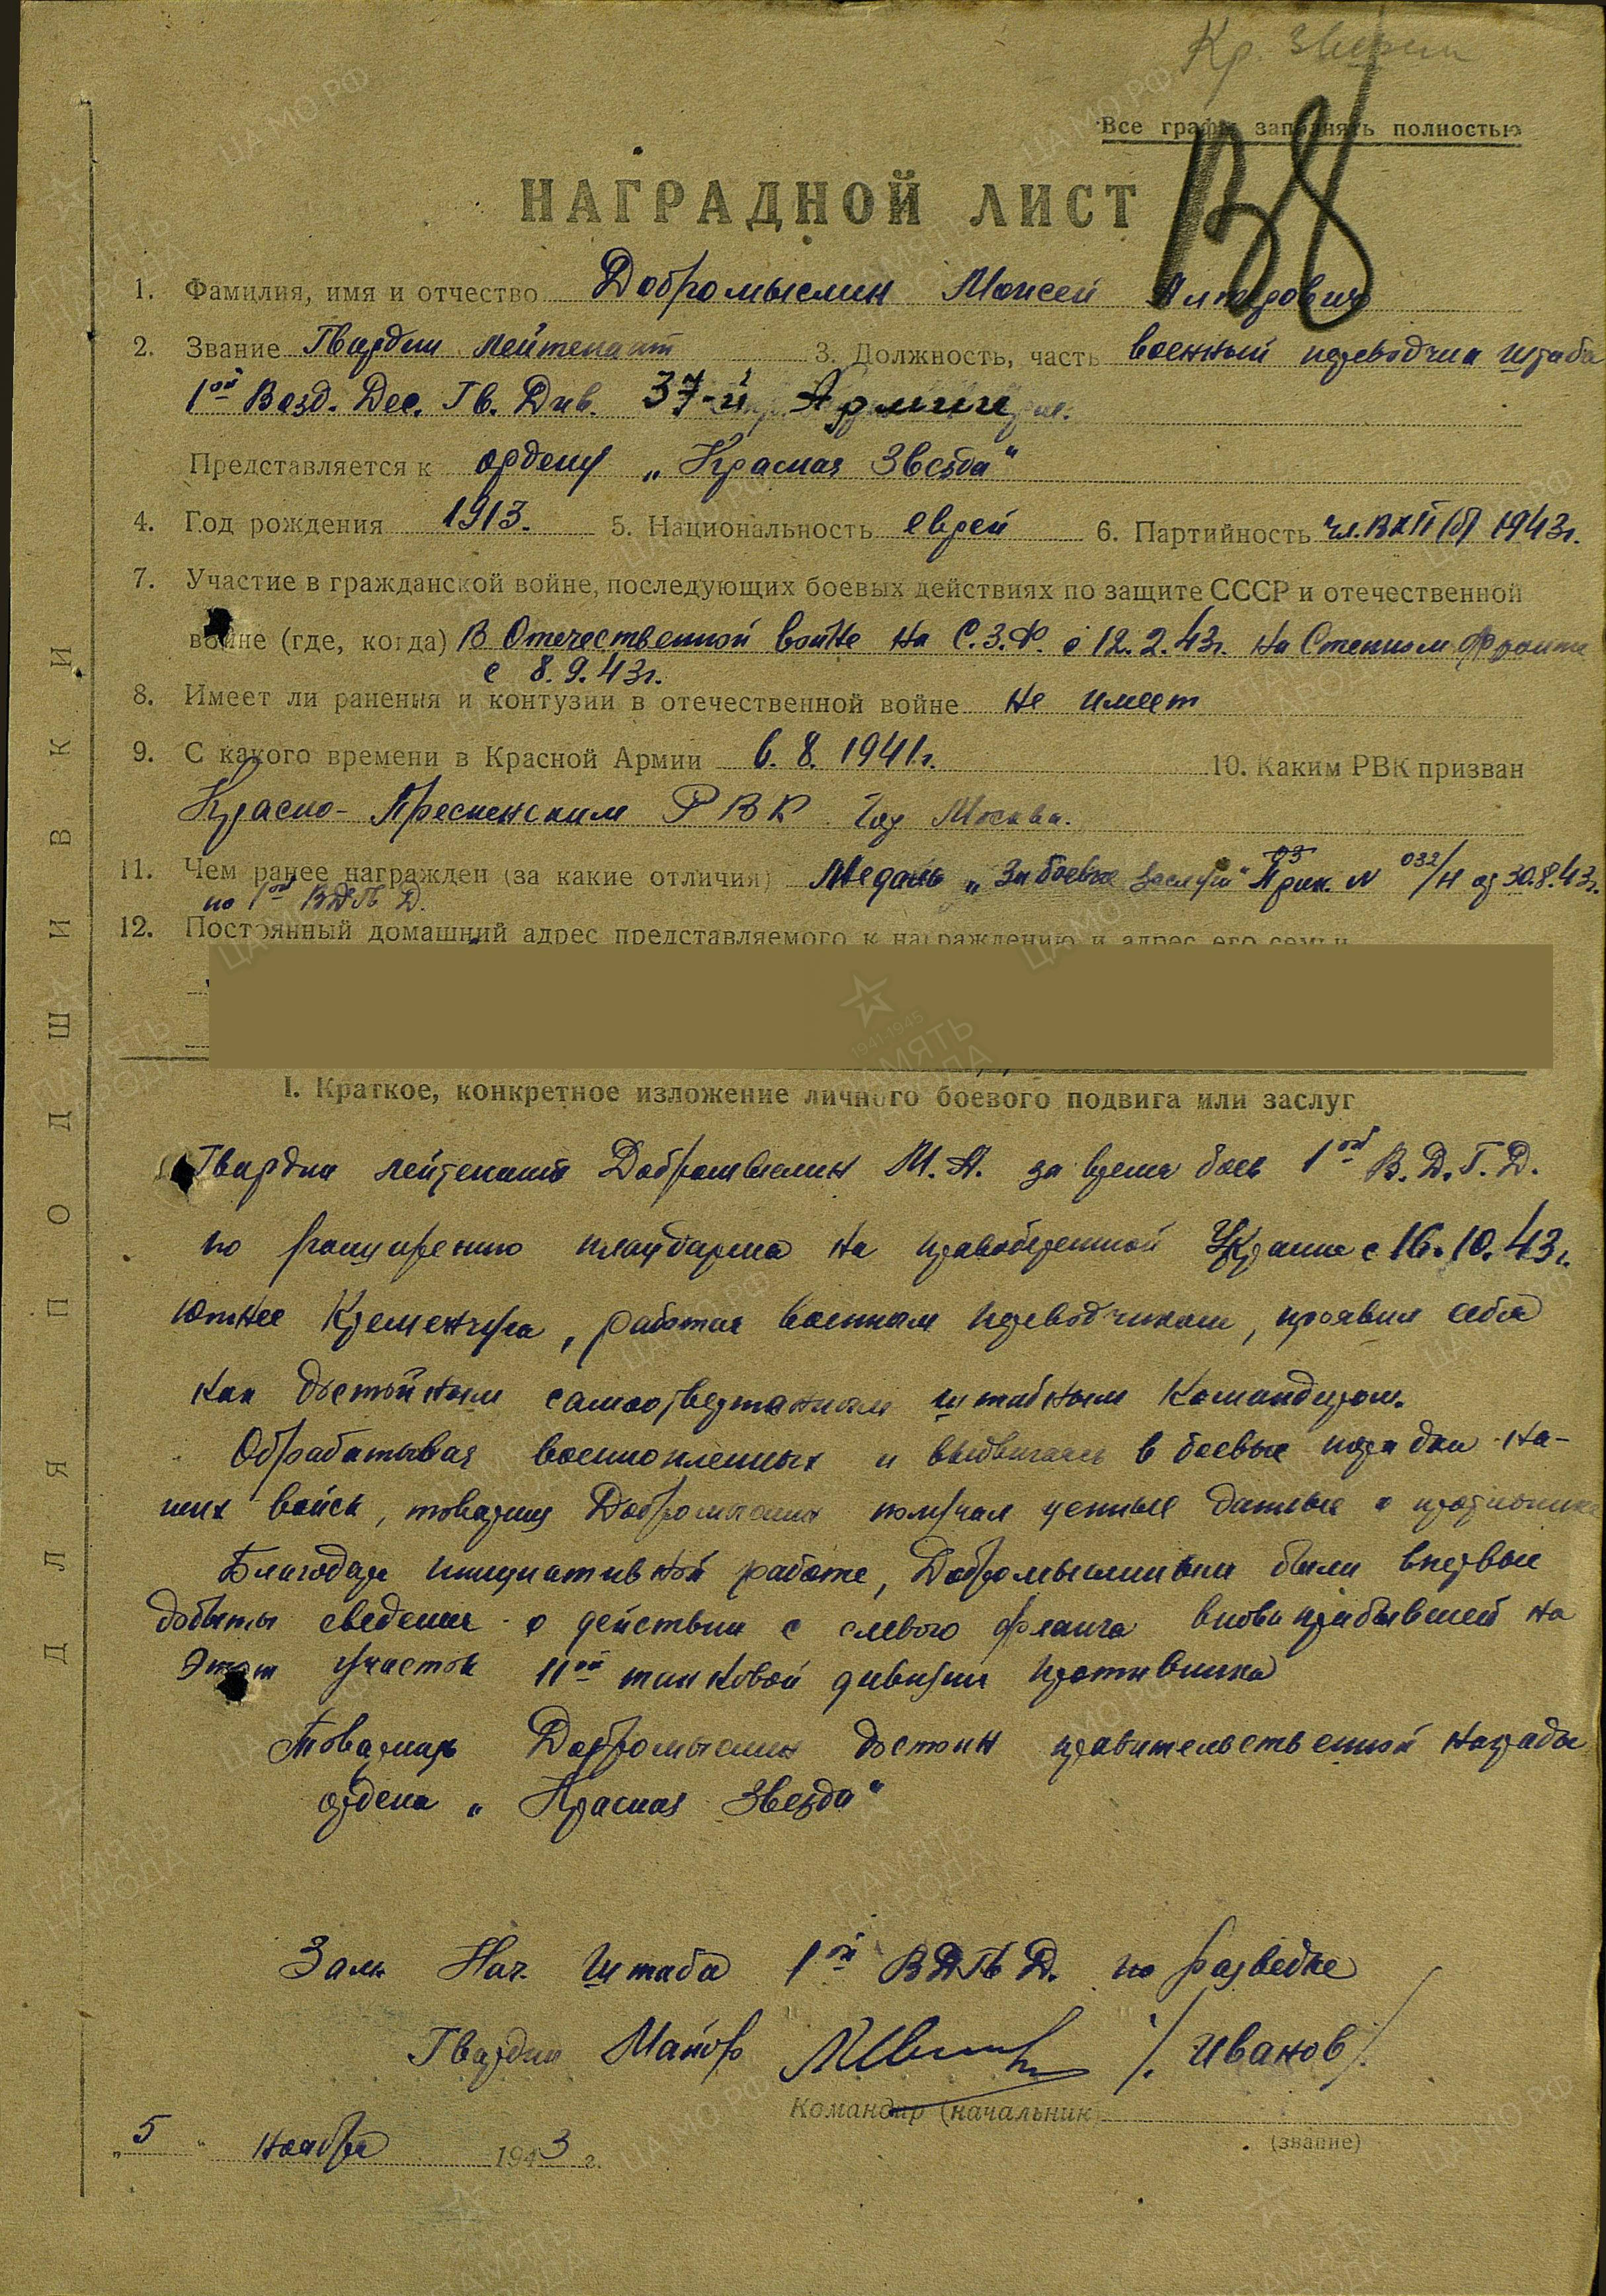 Кр. Звезды
Все графы заполнять полностью
НАГРАДНОЙ ЛИСТ
1. Фамилия, имя и отчество Добромыслин Моисей
2. Звание Гвардии лейтенант 3. Должность, часть военный переводчик штаба
1ой Возд. Дес. Гв. Див. 37-й Армии
Представляется к ордену „Красная Звезда"
4. Год рождения 1913. 5. Национальность еврей 6. Партийность чл. ВКП(б) 1943г.
7. Участие в гражданской войне, последующих боевых действиях по защите СССР и отечественной
войне (где, когда) В Отечественной войне на С.З.Ф. с 12.2.43г. на Степном фронте
с 8.9.43г.
8. Имеет ли ранения и контузии в отечественной войне не имеет
9. С какого времени в Красной Армии 6. 8. 1941г. 10. Каким РВК призван
Красно-Пресненским РВК гор Москва.
11. Чем ранее награжден (за какие отличия) Медаль „За боевые заслуги" Прик. № 032/н от 30.8.43г.
по 1ой ВДГв Д.
12. Постоянный домашний адрес представляемого к награждению и адрес его семьи
I. Краткое, конкретное изложение личного боевого подвига или заслуг
Гвардии лейтенант Добромыслин М.А. за время боев 1ой В.Д.Г.Д.
по расширению плацдарма на правобережной Украине с 16.10.43г.
южнее Кременчуга, работая военным переводчиком, проявил себя
как достойным самоотверженным штабным командиром.
Обрабатывая военнопленных и выдвигаясь в боевые порядки на-
ших войск, товарищ Добромыслин получал ценные данные о противнике
Благодаря инициативной работе, Добромыслиным были впервые
добыты сведения о действии с левого фланга вновь прибывшей на
этот участок 11ой танковой дивизии противника
Товарищ Добромыслин достоин правительственной награды
ордена „Красная Звезда"
Зам Нач. Штаба 1ой ВДГв Д. по разведке
Гвардии Майор /Иванов/.
Командир (начальник)
(звание)
„5" ноября 1943 г.
ДЛЯ ПОДШИВКИ
ЦА МО РФ
ПАМЯТЬ НАРОДА
1941-1945